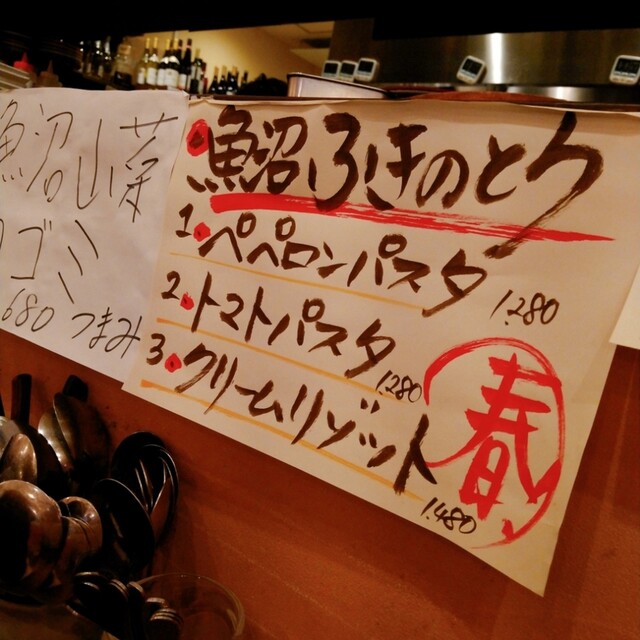 魚沼山菜
コゴミ
680 つまみ
魚沼ふきのとう
1. ペペロンパスタ
1.280
2. トマトパスタ
1.280
3. クリームリゾット
1.480
春